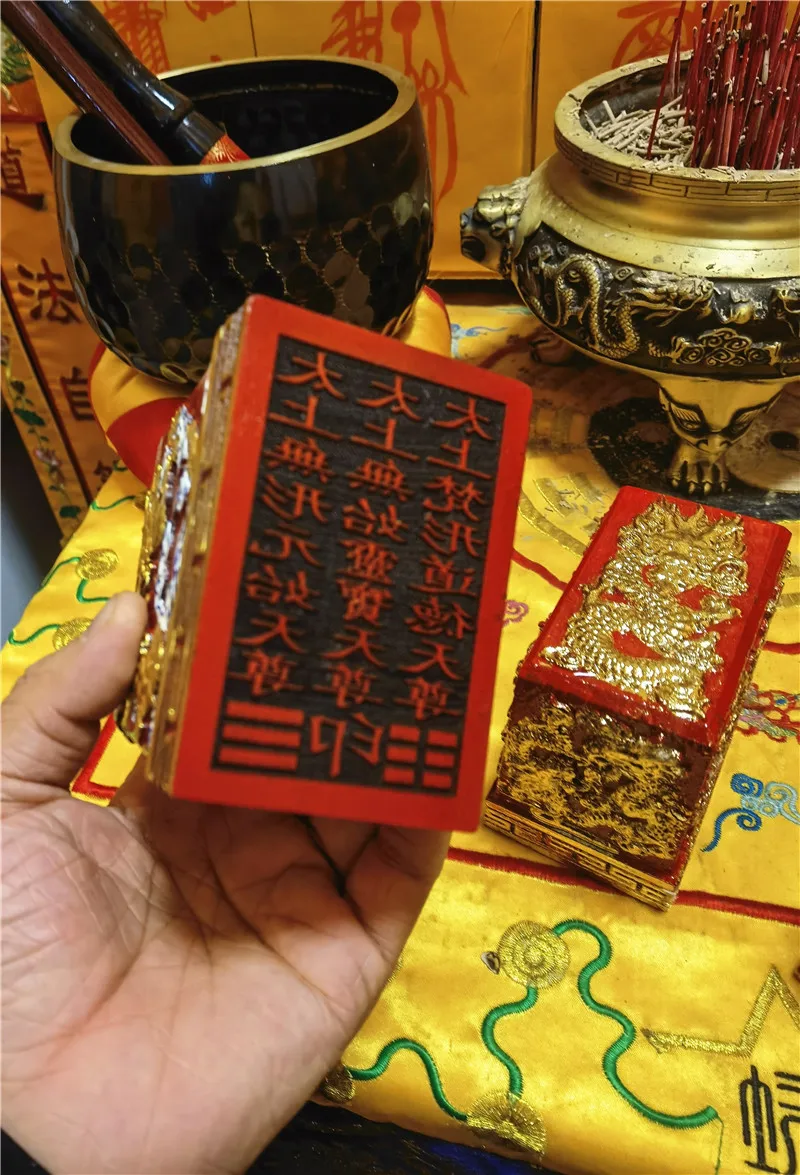 太上無形元始天尊
太上無始靈寶天尊
太上梵形道德天尊
印
道法自